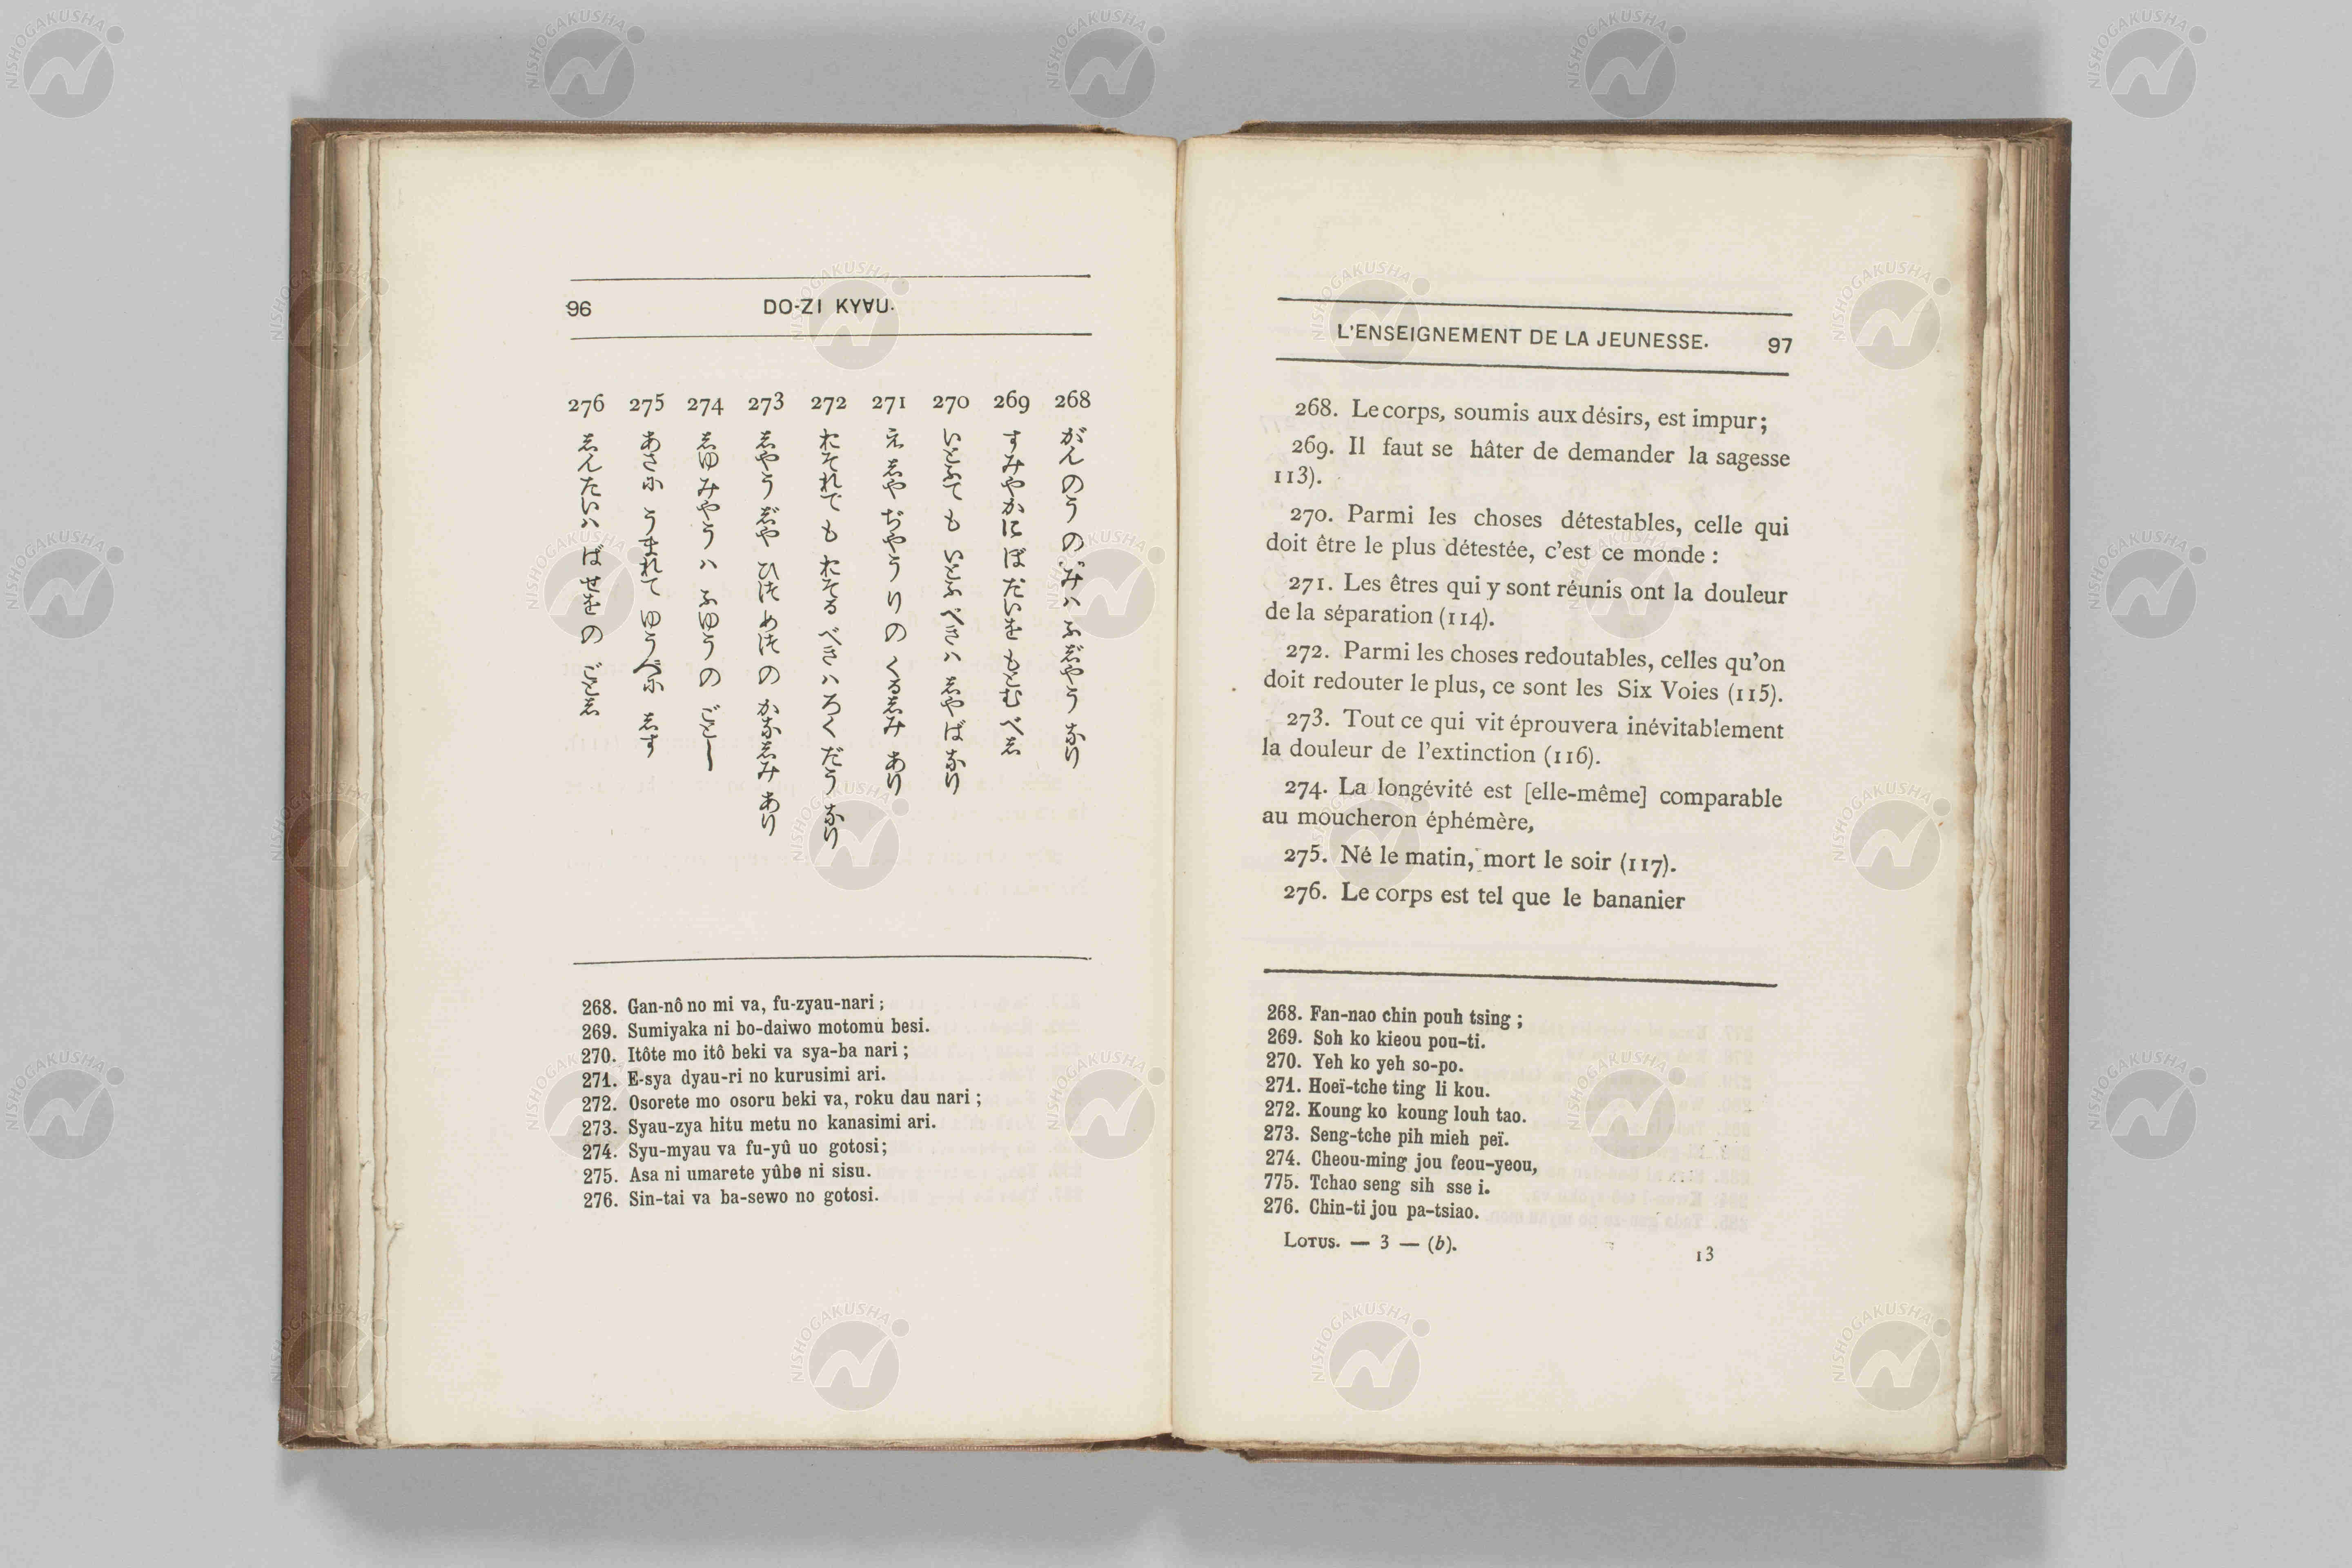 96 DO-ZI KYAU.
268 がんのう の みハ ふぢやう なり
269 すみやかに ぼだいを もとむ べし
270 いとふても いとふ べきハ しやば なり
271 ゑしや ぢやうり の くるしみ あり
272 おそれても おそる べきハ ろくだう なり
273 しやうじや ひつ めつ の かなしみ あり
274 しゆみやう ハ ふゆう の ごとし
275 あさに うまれて ゆうべに しす
276 しんたいハ ばせを の ごとし
268. Gan-nô no mi va, fu-zyau-nari ;
269. Sumiyaka ni bo-daiwo motomu besi.
270. Itôte mo itô beki va sya-ba nari ;
271. E-sya dyau-ri no kurusimi ari.
272. Osorete mo osoru beki va, roku dau nari ;
273. Syau-zya hitu metu no kanasimi ari.
274. Syu-myau va fu-yû uo gotosi;
275. Asa ni umarete yûbe ni sisu.
276. Sin-tai va ba-sewo no gotosi.
L'ENSEIGNEMENT DE LA JEUNESSE. 97
268. Le corps, soumis aux désirs, est impur;
269. Il faut se hâter de demander la sagesse
113).
270. Parmi les choses détestables, celle qui
doit être le plus détestée, c'est ce monde :
271. Les êtres qui y sont réunis ont la douleur
de la séparation (114).
272. Parmi les choses redoutables, celles qu'on
doit redouter le plus, ce sont les Six Voies (115).
273. Tout ce qui vit éprouvera inévitablement
la douleur de l'extinction (116).
274. La longévité est [elle-même] comparable
au moucheron éphémère,
275. Né le matin, mort le soir (117).
276. Le corps est tel que le bananier
268. Fan-nao chin pouh tsing ;
269. Soh ko kieou pou-ti.
270. Yeh ko yeh so-po.
271. Hoeï-tche ting li kou.
272. Koung ko koung louh tao.
273. Seng-tche pih mieh peï.
274. Cheou-ming jou feou-yeou,
775. Tchao seng sih sse i.
276. Chin-ti jou pa-tsiao.
LOTUS. — 3 — (b). 13
NISHOGAKUSHA